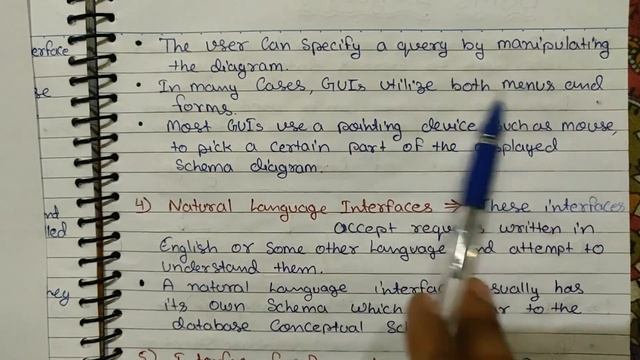 erface
• The user can specify a query by manipulating
the diagram.
• In many cases, GUIs utilize both menus and
forms.
• Most GUIs use a pointing device, such as mouse,
to pick a certain part of the displayed
Schema diagram.
4) Natural Language Interfaces → These interfaces
accept requests written in
English or some other Language and attempt to
understand them.
• A natural Language interface usually has
its own Schema which to the
database Conceptual
5)